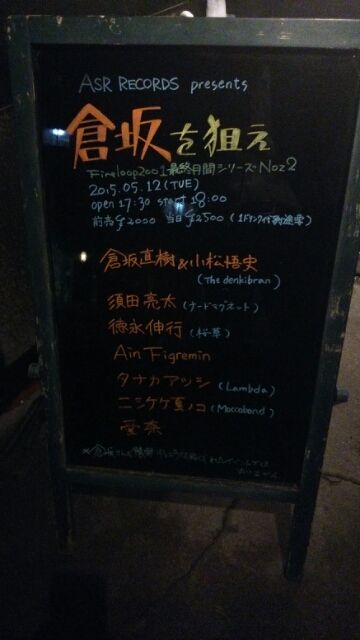 ASR RECORDS presents
倉坂を狙え
Fireloop2001最終月間シリーズNo.2
2015.05.12(TUE)
open 17:30 start 18:00
前売¥2000 当日¥2500 (1ドリンク代別途要)
倉坂直樹&小松悟史
(The denkibran)
須田亮太 (ナードマグネット)
徳永伸行 (桜草)
Ain Figremin
タナカアツシ (Lambda)
ニシケケ夏ノコ (Moccobond)
愛奈
※倉坂さんを